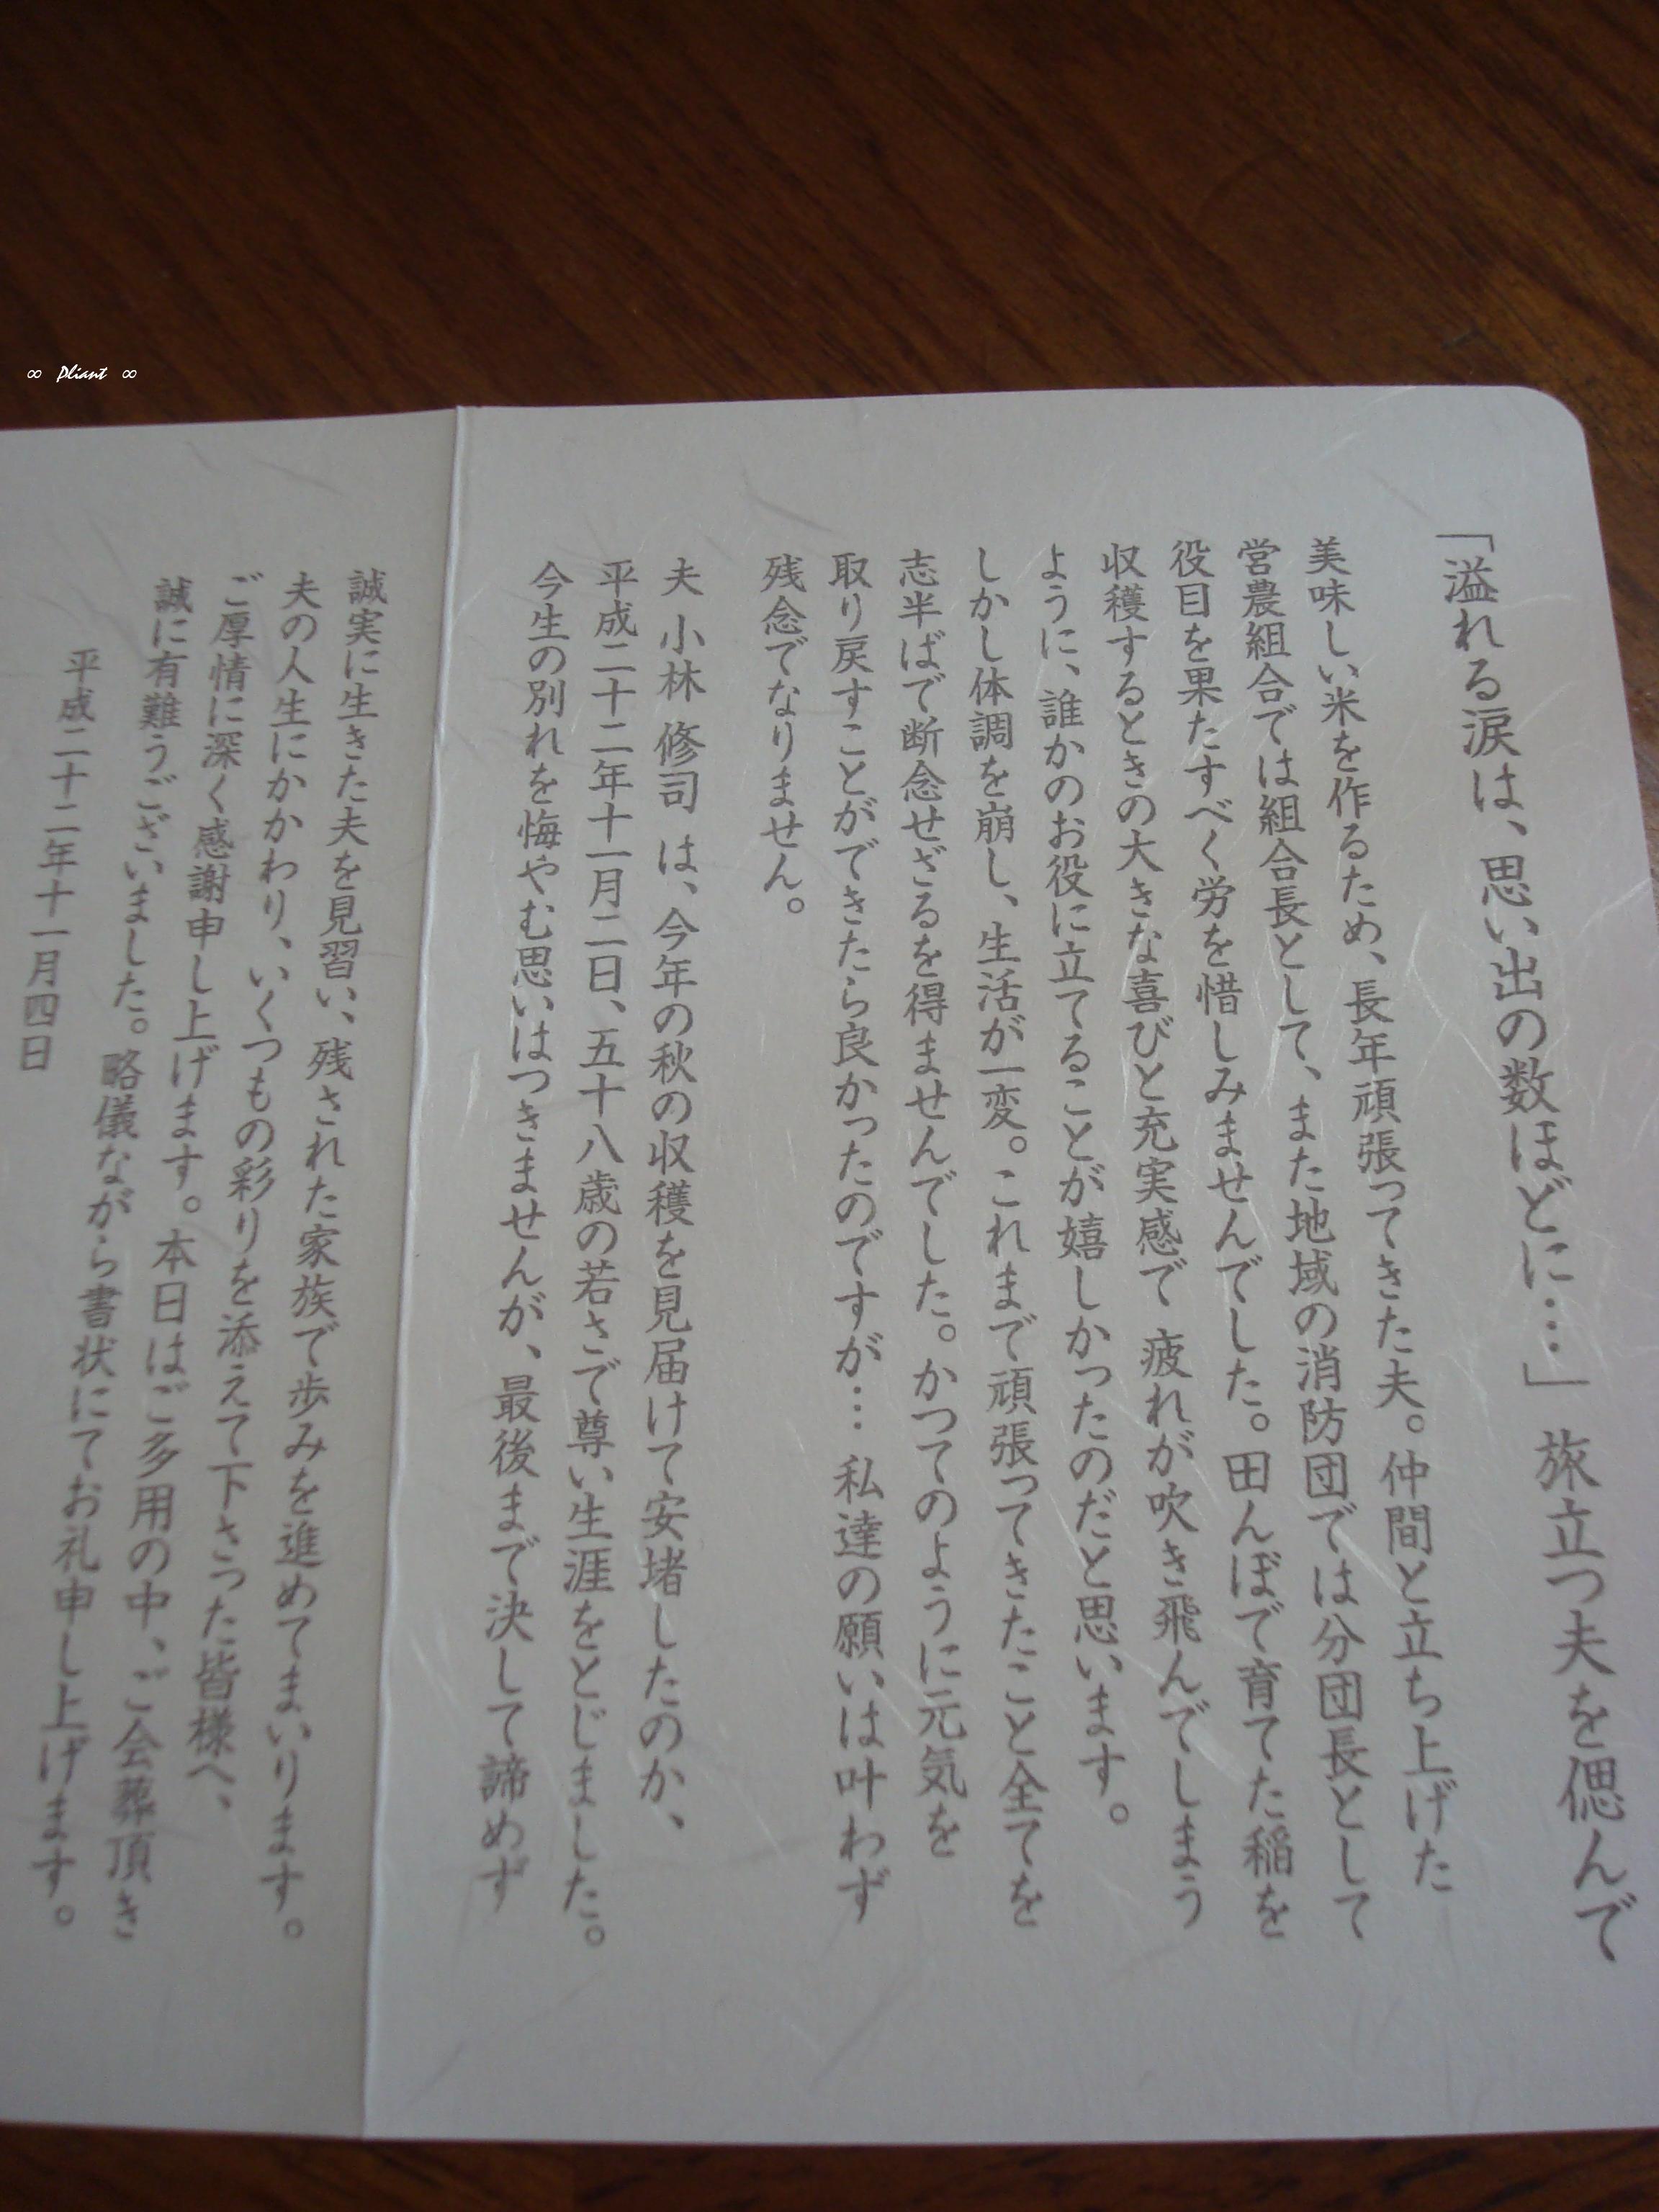 「溢れる涙は、思い出の数ほどに…」旅立つ夫を偲んで
美味しい米を作るため、長年頑張ってきた夫。仲間と立ち上げた
営農組合では組合長として、また地域の消防団では分団長として
役目を果たすべく労を惜しみませんでした。田んぼで育てた稲を
収穫するときの大きな喜びと充実感で 疲れが吹き飛んでしまう
ように、誰かのお役に立てることが嬉しかったのだと思います。
しかし体調を崩し、生活が一変。これまで頑張ってきたこと全てを
志半ばで断念せざるを得ませんでした。かつてのように元気を
取り戻すことができたら良かったのですが… 私達の願いは叶わず
残念でなりません。
夫 小林 修司 は、今年の秋の収穫を見届けて安堵したのか、
平成二十二年十一月二日、五十八歳の若さで尊い生涯をとじました。
今生の別れを悔やむ思いはつきませんが、最後まで決して諦めず
誠実に生きた夫を見習い、残された家族で歩みを進めてまいります。
夫の人生にかかわり、いくつもの彩りを添えて下さった皆様へ、
ご厚情に深く感謝申し上げます。本日はご多用の中、ご会葬頂き
誠に有難うございました。略儀ながら書状にてお礼申し上げます。
平成二十二年十一月四日
∞ Pliant ∞